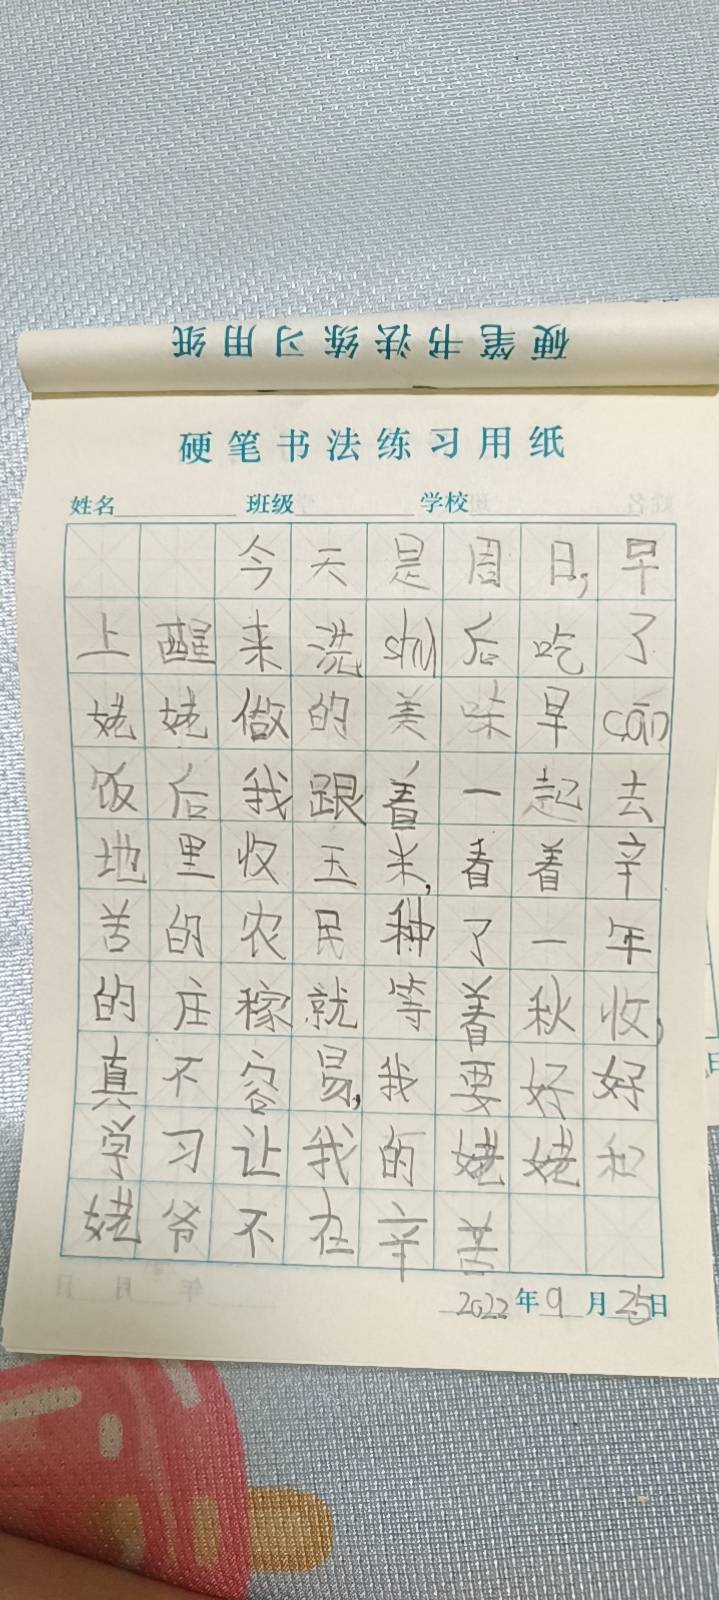 硬笔书法练习用纸
硬笔书法练习用纸
姓名 班级 学校
今天是周日,早
上醒来洗shù后吃了
姥姥做的美味早cān
饭后我跟着一起去
地里收玉米,看着辛
苦的农民种了一年
的庄稼就等着秋收,
真不容易,我要好好
学习让我的姥姥和
姥爷不在辛苦
2022年9月25日